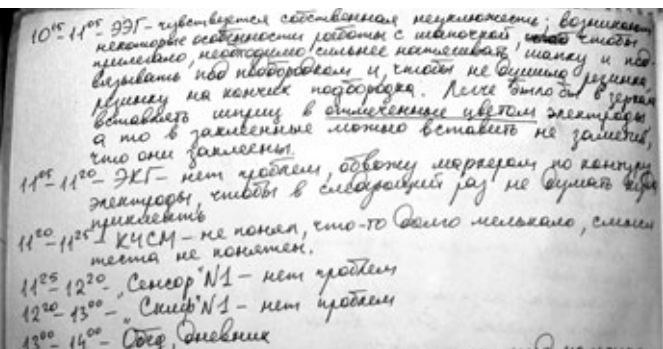 10⁰⁵-11⁰⁵- ЭЭГ - чувствуется собственная неуклюжесть; возникают
некоторые особенности работы с шапочкой, чтобы
прилегало, необходимо сильнее натягивать шапку и под-
вязывать под подбородком и, чтобы не душила резинка,
резинку на кончик подбородка. Легче было бы в зеркало
вставлять шприц в отмеченные цветом электроды,
а то в заклеенные можно вставить не заметив,
что они заклеены.
11⁰⁵-11²⁰- ЭКГ - нет проблем, обвожу маркером по контуру
электроды, чтобы в следующий раз не думать куда
приклеить
11²⁰-11²⁵- КЧСМ - не понял, что-то долго мелькало, смысл
теста не понятен.
11²⁵-12²⁰- „Сенсор" N1 - нет проблем
12²⁰-13⁰⁰- „Скиф" N1 - нет проблем
13⁰⁰-14⁰⁰- Обед, дневник